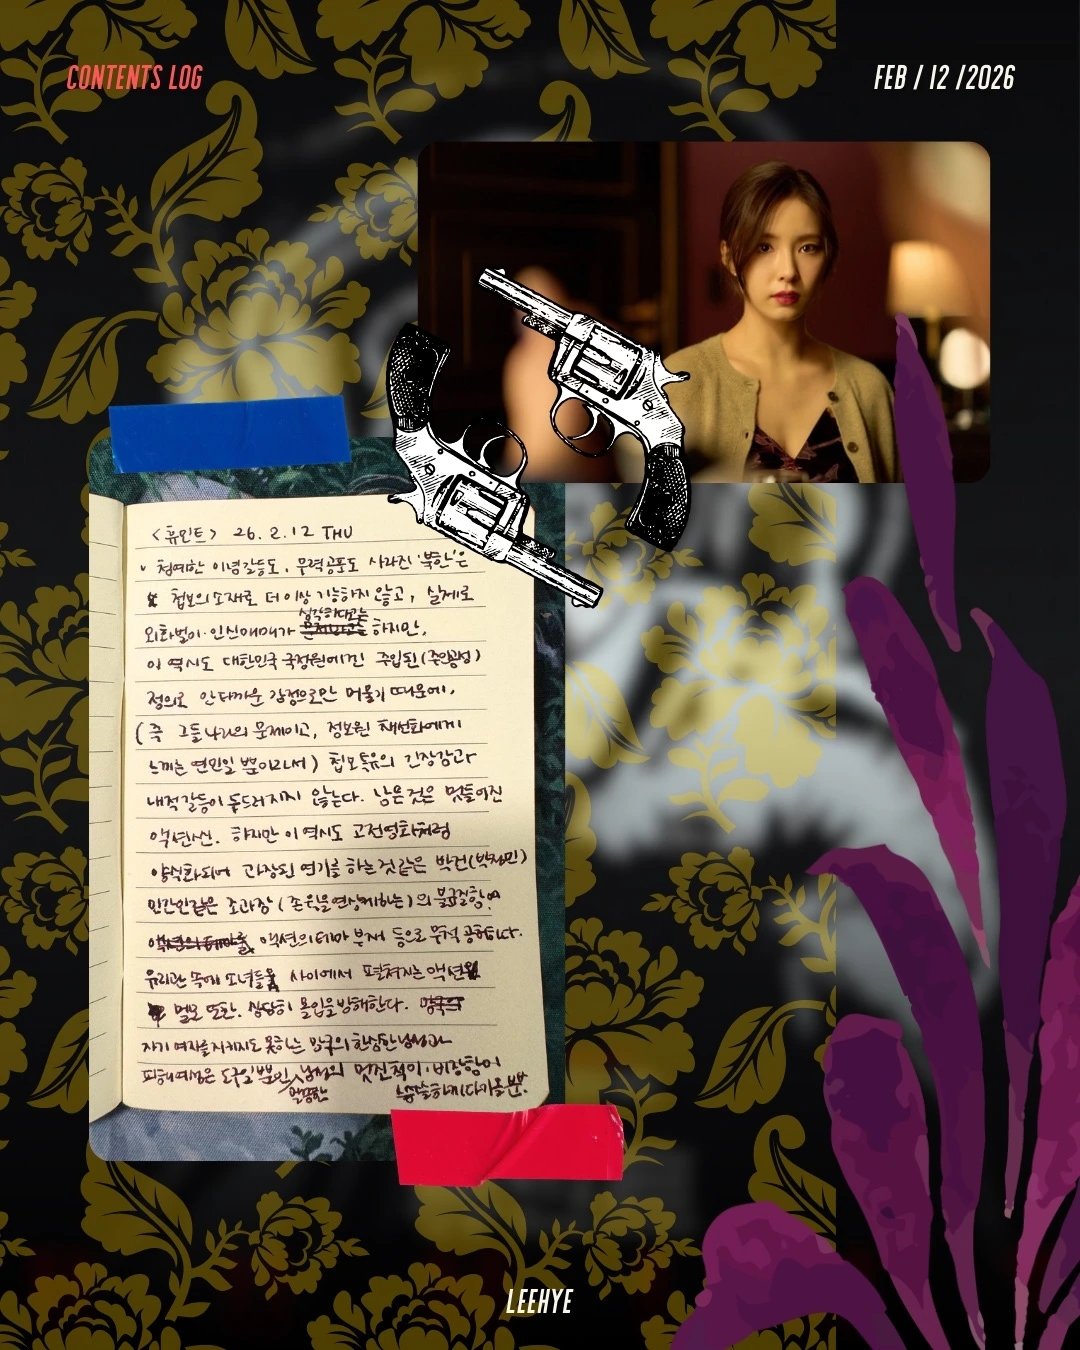 CONTENTS LOG
FEB / 12 /2026
<휴민트> 26. 2. 12 THU
첨예한 이념갈등도, 무력공포도 사라진 '북한'은
첩보의 소재로 더이상 기능하지 않고, 실제로
생각하다고는
외화벌이·인신매매가 하지만,
이 역시도 대한민국 국정원에겐 주입된(주인공성)
정의로 안타까운 감정으로만 머물기 때문에,
(즉 그들 나라의 문제이고, 정보원 채선화에게
느끼는 연민일 뿐이라서) 첩보특유의 긴장감과
내적갈등이 두드러지지 않는다. 남은것은 멋들어진
액션신. 하지만 이 역시도 고전영화처럼
양식화되어 과장된 연기를 하는 것 같은 박건(박정민)
민간인같은 조과장(조인성을 연상케하는)의 불균질함
액션의 테마 부재 등으로 무척 공허하다.
유리관 속에 소녀들 사이에서 펼쳐지는 액션
멜로 또한. 상당히 몰입을 방해한다.
자기 여자를 지키지도 못하는 망국의 한심한 남성과
피해여성은 도구일 뿐인 남성의 멋진척이·비장함이
알량한 능술하게 다가올 뿐.
LEEHYE